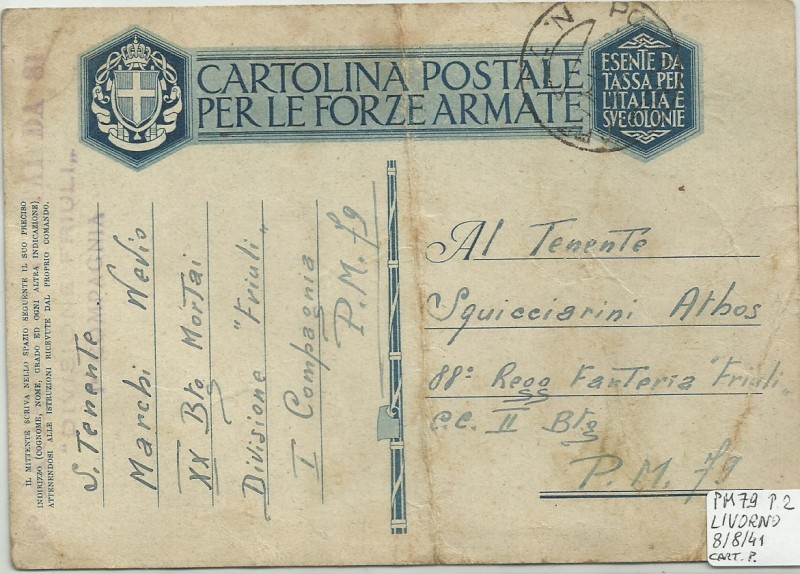 CARTOLINA POSTALE
PER LE FORZE ARMATE
ESENTE DA
TASSA PER
L'ITALIA E
SVE COLONIE
IL MITTENTE SCRIVA NELLO SPAZIO SEGUENTE IL SUO PRECISO
INDIRIZZO (COGNOME, NOME, GRADO ED OGNI ALTRA INDICAZIONE)
ATTENENDOSI ALLE ISTRUZIONI RICEVUTE DAL PROPRIO COMANDO.
S. Tenente
Marchi Nevio
XX Btg Mortai
Divisione "Friuli"
I Compagnia
P. M. 79
Al Tenente
Squicciarini Athos
88º Regg Fanteria "Friuli"
C.C. II Btg
P. M. 79
PM79 T.2
LIVORNO
8/8/41
CART. P.